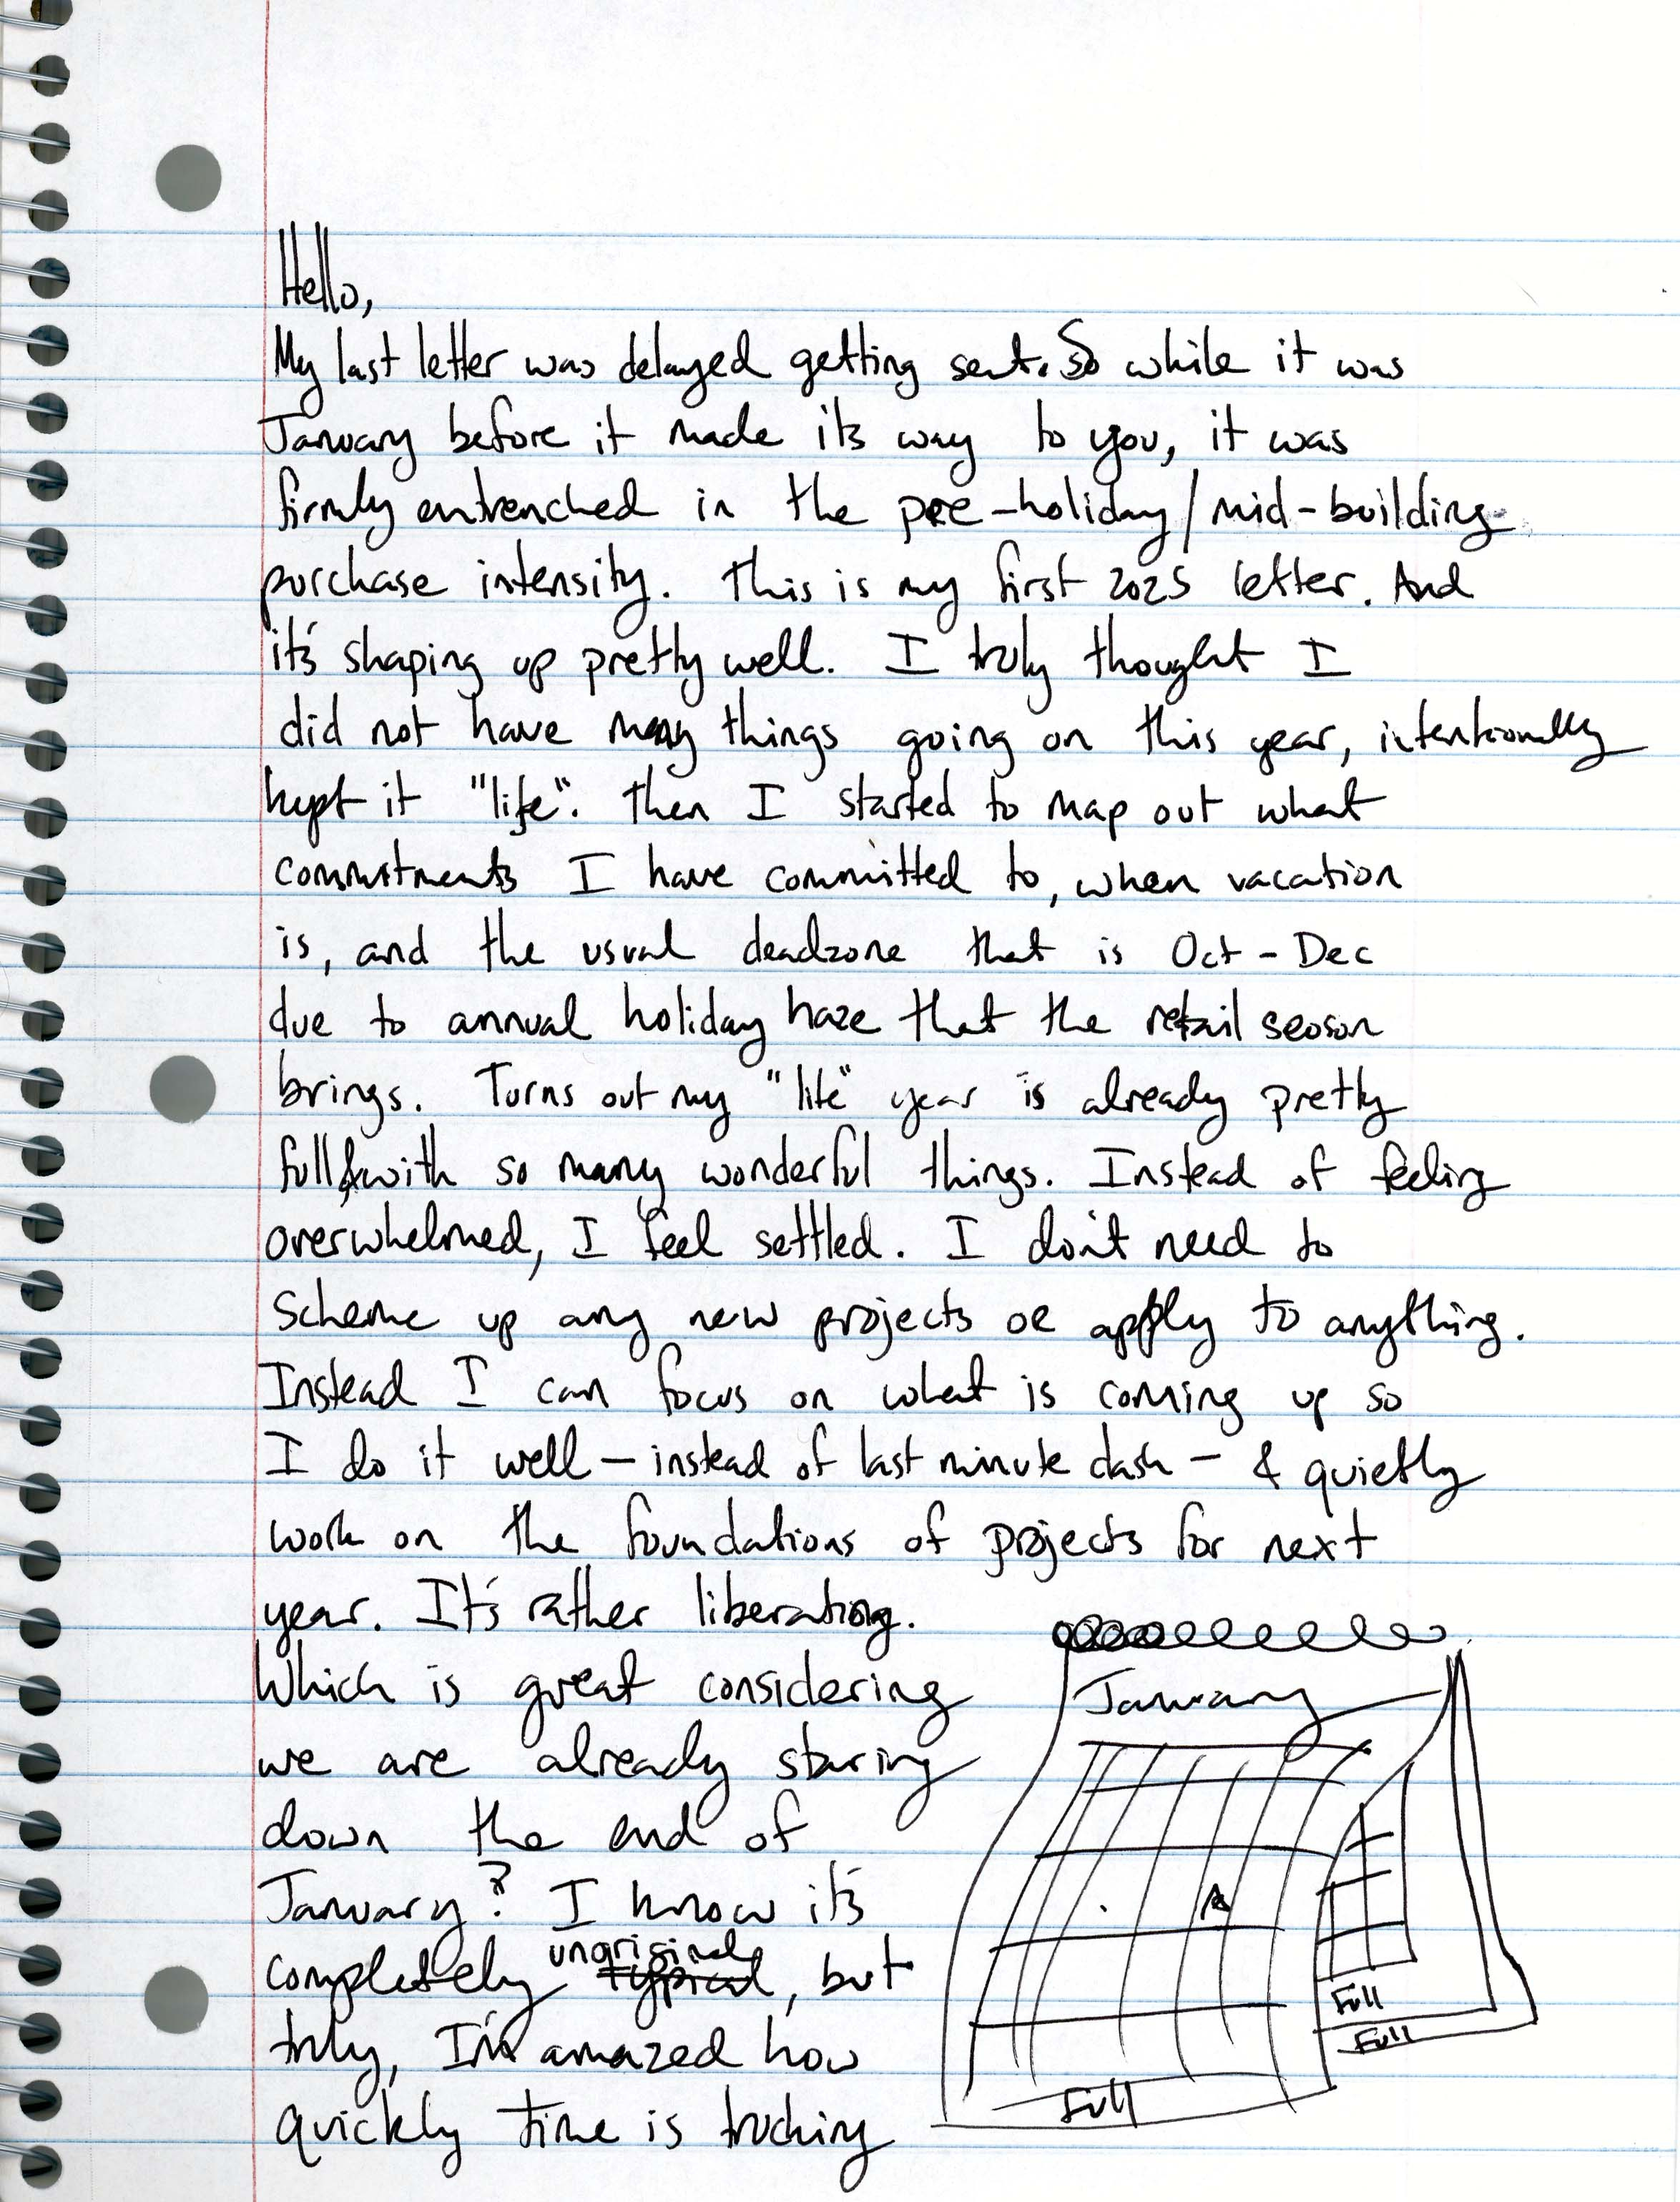 Hello,
My last letter was delayed getting sent. So while it was
January before it made its way to you, it was
firmly entrenched in the pre-holiday/mid-building
purchase intensity. This is my first 2025 letter. And
it's shaping up pretty well. I truly thought I
did not have many things going on this year, intentionally
kept it "life". Then I started to map out what
commitments I have committed to, when vacation
is, and the usual deadzone that is Oct - Dec
due to annual holiday haze that the retail season
brings. Turns out my "lite" year is already pretty
full & with so many wonderful things. Instead of feeling
overwhelmed, I feel settled. I don't need to
scheme up any new projects or apply to anything.
Instead I can focus on what is coming up so
I do it well – instead of last minute dash – & quietly
work on the foundations of projects for next
year. It's rather liberating.
Which is great considering
we are already staring
down the end of
January? I know it's
completely unoriginal typical, but
truly, I'm amazed how
quickly time is trucking
January
Full
Full
Full